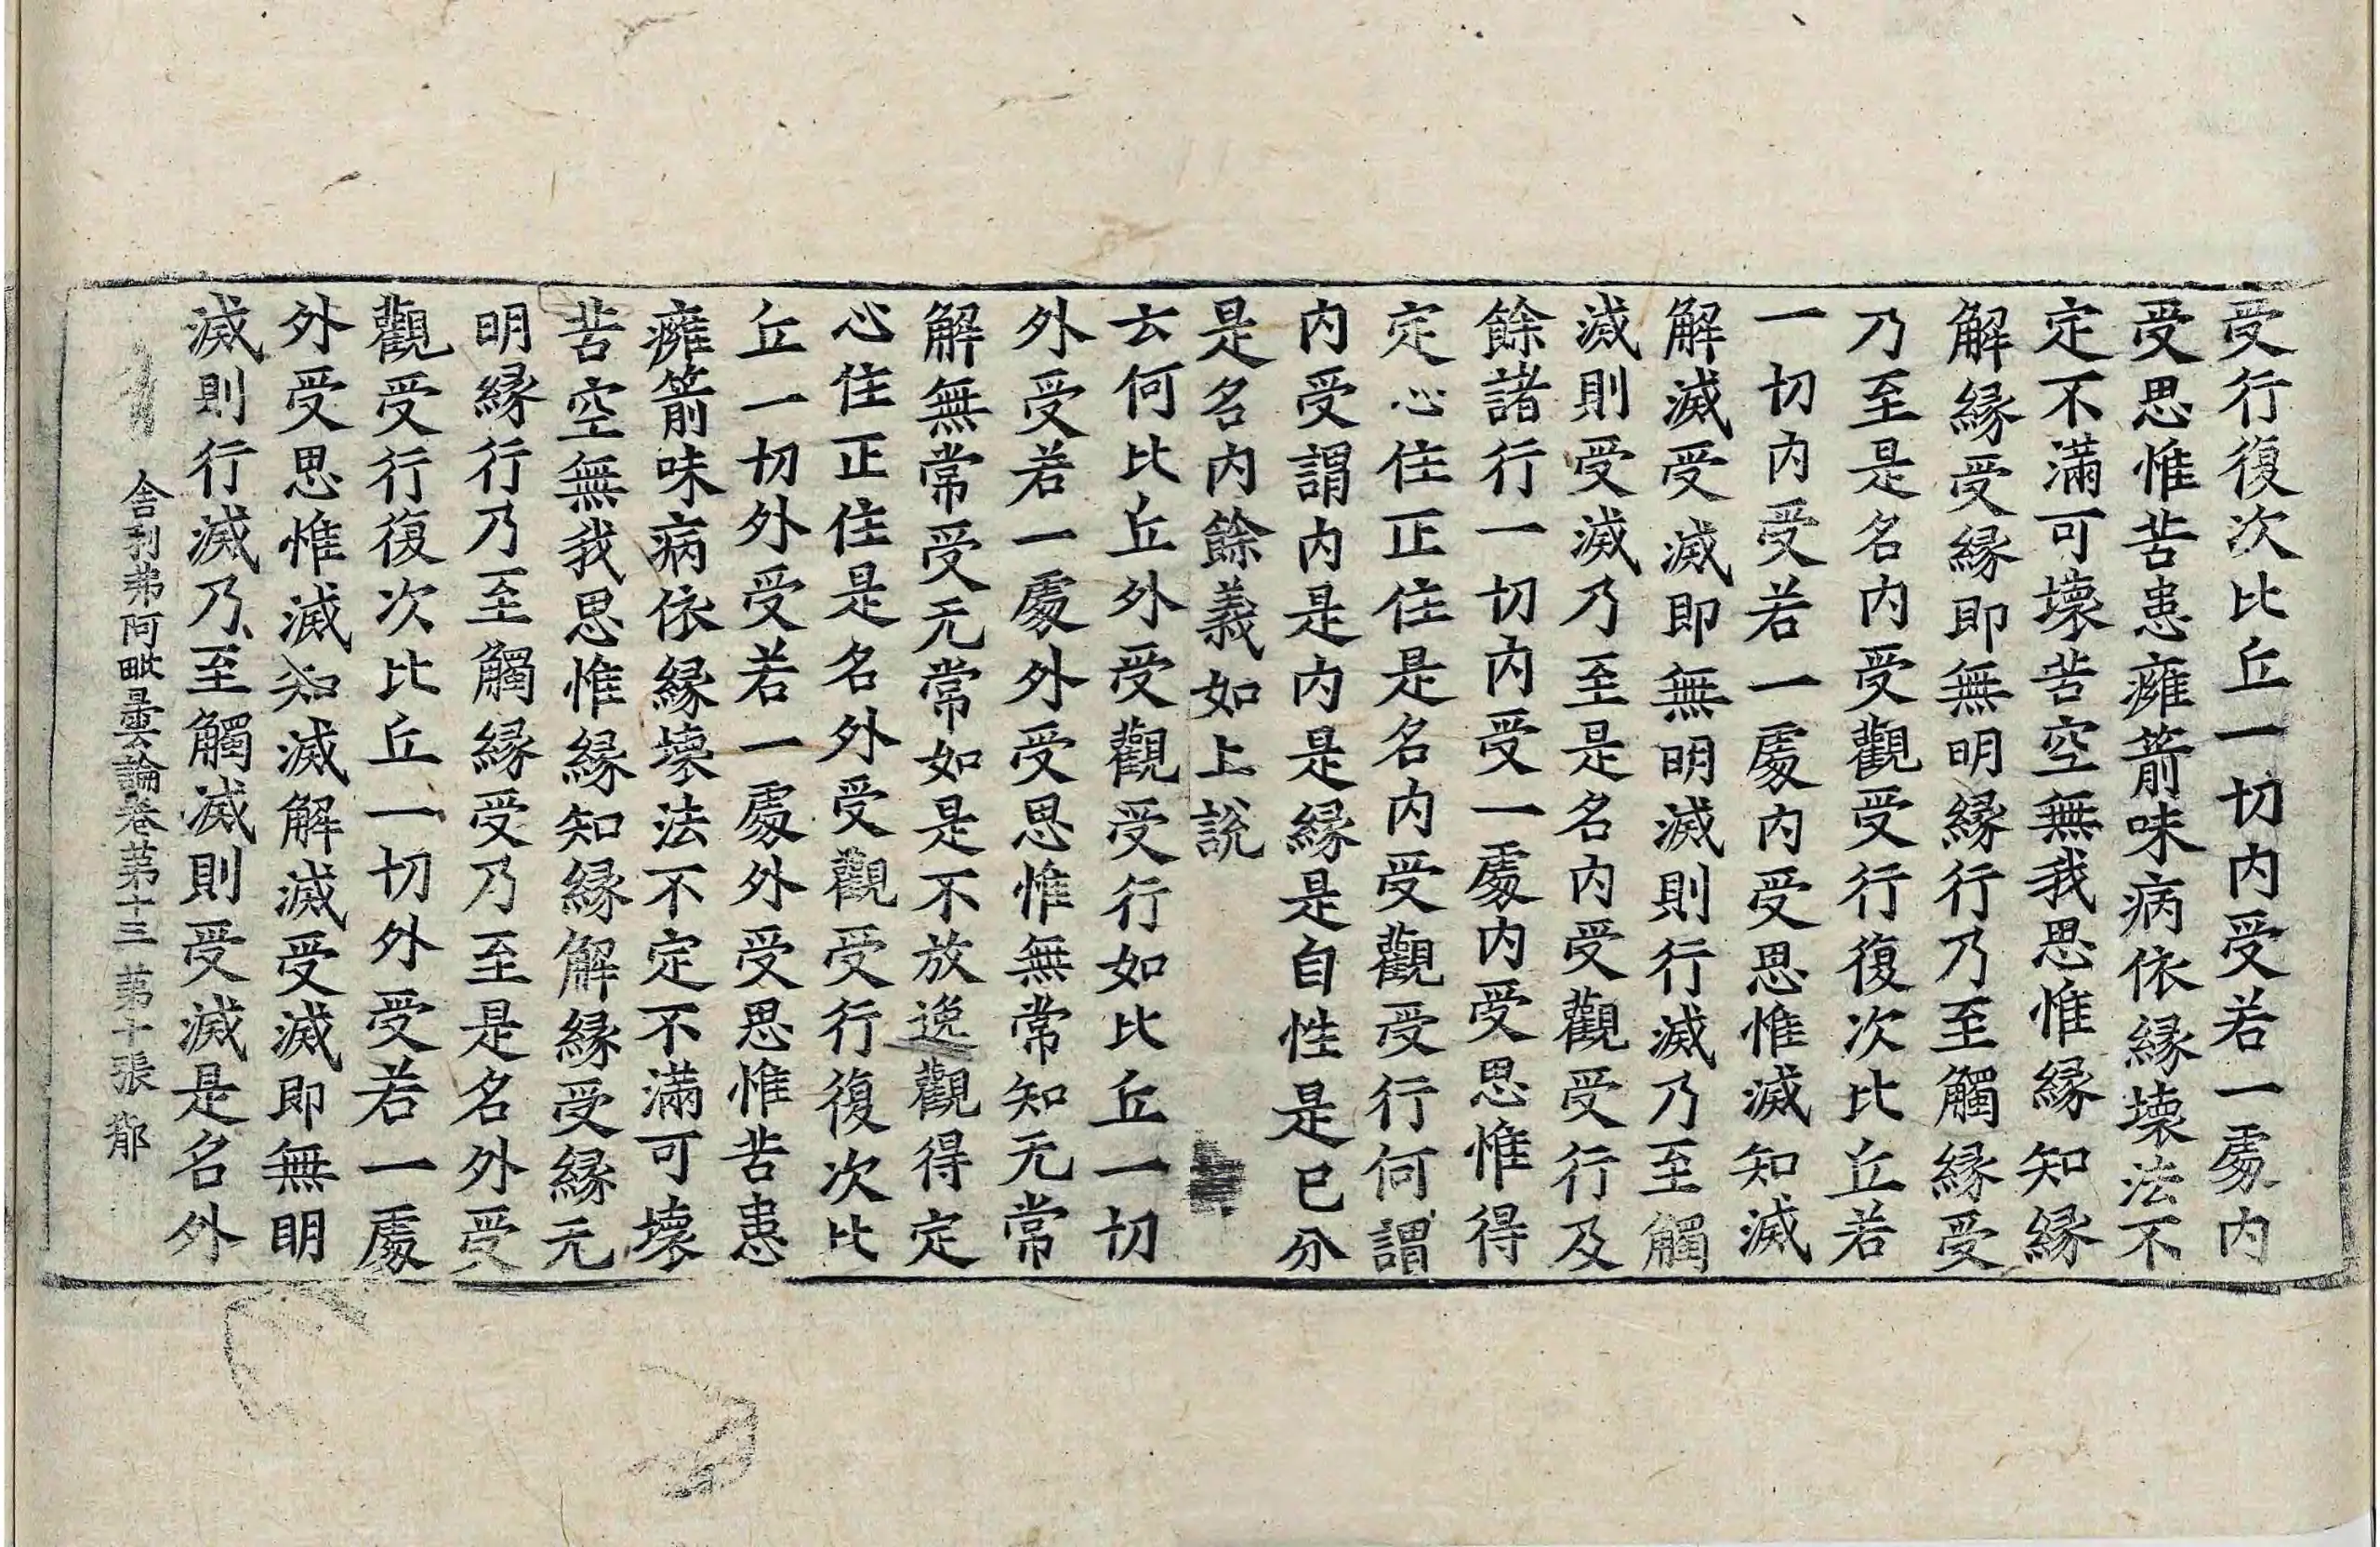 受行復次比丘一切內受若一處內
受思惟苦患癰箭味病依緣壞法不
定不滿可壞苦空無我思惟緣知緣
解緣受緣即無明緣行乃至觸緣受
乃至是名內受觀受行復次比丘若
一切內受若一處內受思惟滅知滅
解滅受滅即無明滅則行滅乃至觸
滅則受滅乃至是名內受觀受行及
餘諸行一切內受一處內受思惟得
定心住正住是名內受觀受行何謂
內受謂內是內是緣是自性是已分
是名內餘義如上說
云何比丘外受觀受行如比丘一切
外受若一處外受思惟無常知无常
解無常受无常如是不放逸觀得定
心住正住是名外受觀受行復次比
丘一切外受若一處外受思惟苦患
癰箭味病依緣壞法不定不滿可壞
苦空無我思惟緣知緣解緣受緣无
明緣行乃至觸緣受乃至是名外受
觀受行復次比丘一切外受若一處
外受思惟滅知滅解滅受滅即無明
滅則行滅乃至觸滅則受滅是名外
舍利弗阿毗曇論卷苐十三 苐十張 鄁